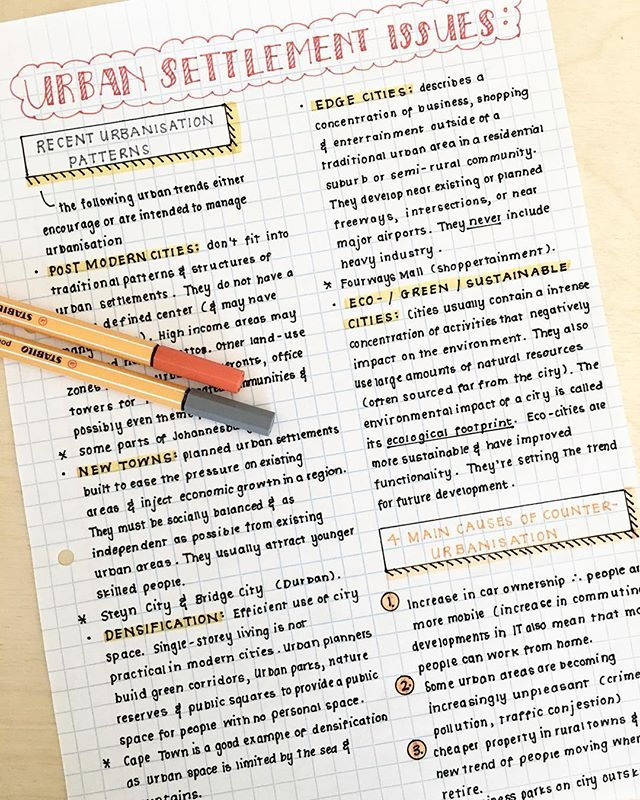 URBAN SETTLEMENT ISSUES:
RECENT URBANISATION
PATTERNS
the following urban trends either
encourage or are intended to manage
urbanisation
• POST MODERN CITIES: don't fit into
traditional patterns & structures of
urban settlements. They do not have a
defined center (& may have
). High income areas may
. Other land-use
zones office
towers for communities &
possibly even them
* Some parts of Johannesbu
• NEW TOWNS: planned urban settlements
built to ease the pressure on existing
areas & inject economic growth in a region.
They must be socially balanced & as
independent as possible from existing
urban areas. They usually attract younger
skilled people.
* Steyn City & Bridge city (Durban).
• DENSIFICATION: Efficient use of city
space. Single-storey living is not
practical in modern cities. Urban planners
build green corridors, Urban parks, nature
reserves & public squares to provide a public
space for people with no personal space.
* Cape Town is a good example of densification
as urban space is limited by the sea &
mountains.
• EDGE CITIES: describes a
concentration of business, shopping
& entertainment outside of a
traditional urban area in a residential
suburb or semi-rural community.
They develop near existing or planned
freeways, intersections, or near
major airports. They never include
heavy industry.
* Fourways Mall (shoppertainment).
• ECO- / GREEN / SUSTAINABLE
CITIES: Cities usually contain a intense
concentration of activities that negatively
impact on the environment. They also
use large amounts of natural resources
(often sourced far from the city). The
environmental impact of a city is called
its ecological footprint. Eco-cities are
more sustainable & have improved
functionality. They're setting the trend
for future development.
4 MAIN CAUSES OF COUNTER-
URBANISATION
1. Increase in car ownership ∴ people ar
more mobile (increase in commutin
developments in IT also mean that mo
people can work from home.
2. Some urban areas are becoming
increasingly unpleasant (crime
pollution, traffic conjestion)
3. cheaper property in rural towns &
new trend of people moving when
retire.
siness parks on city outsk
STABILO
STABILO